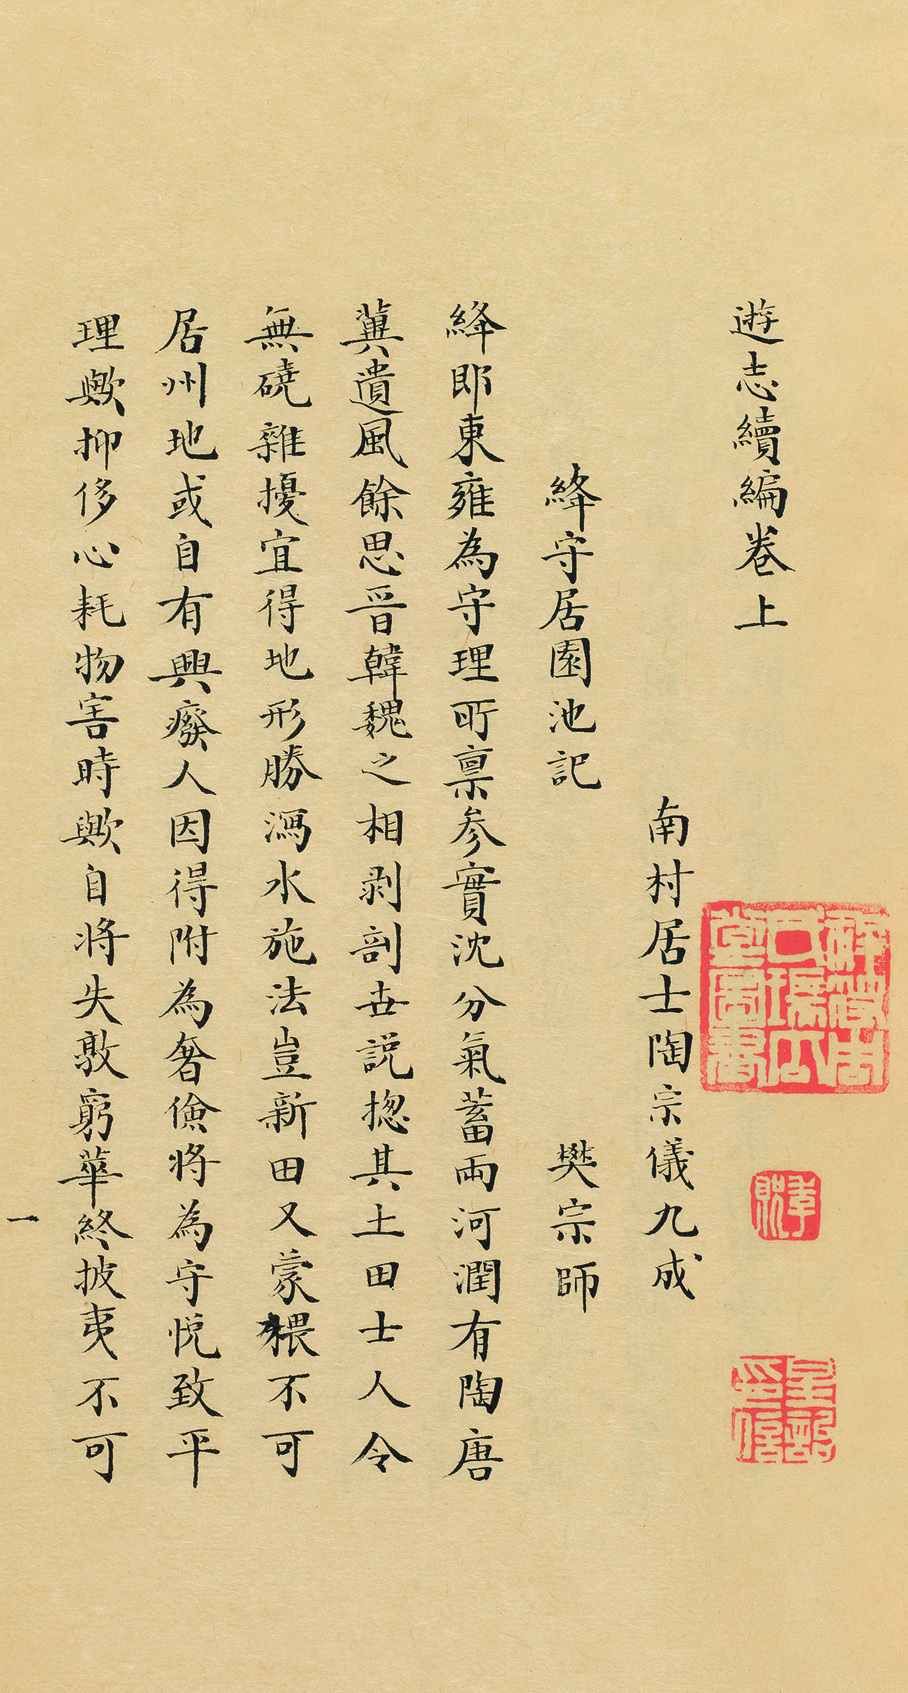 遊志續編卷上
南村居士陶宗儀九成
絳守居園池記
樊宗師
絳即東雍為守理所禀參實沈分氣蓄兩河潤有陶唐
冀遺風餘思晉韓魏之相剥剖世説揔其土田士人令
無磽雜擾宜得地形勝瀉水施法豈新田又蒙猥不可
居州地或自有興癈人因得附為奢儉將為守悅致平
理歟抑侈心耗物害時歟自將失敦窮華終披夷不可
一